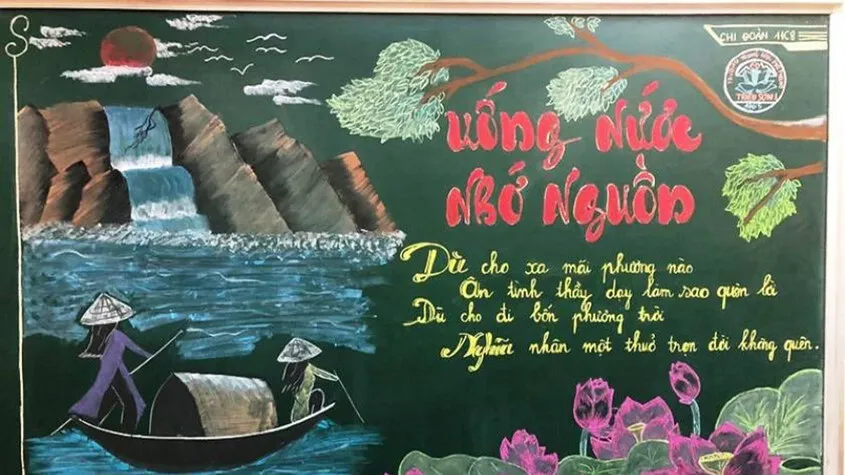 CHI ĐOÀN 11C8
TRIỆU SƠN 1
UỐNG NƯỚC
NHỚ NGUỒN
Dù cho xa mãi phương nào
Ân tình thầy dạy làm sao quên lời
Dù cho đi bốn phương trời
Nghĩa nhân một thuở trọn đời không quên.